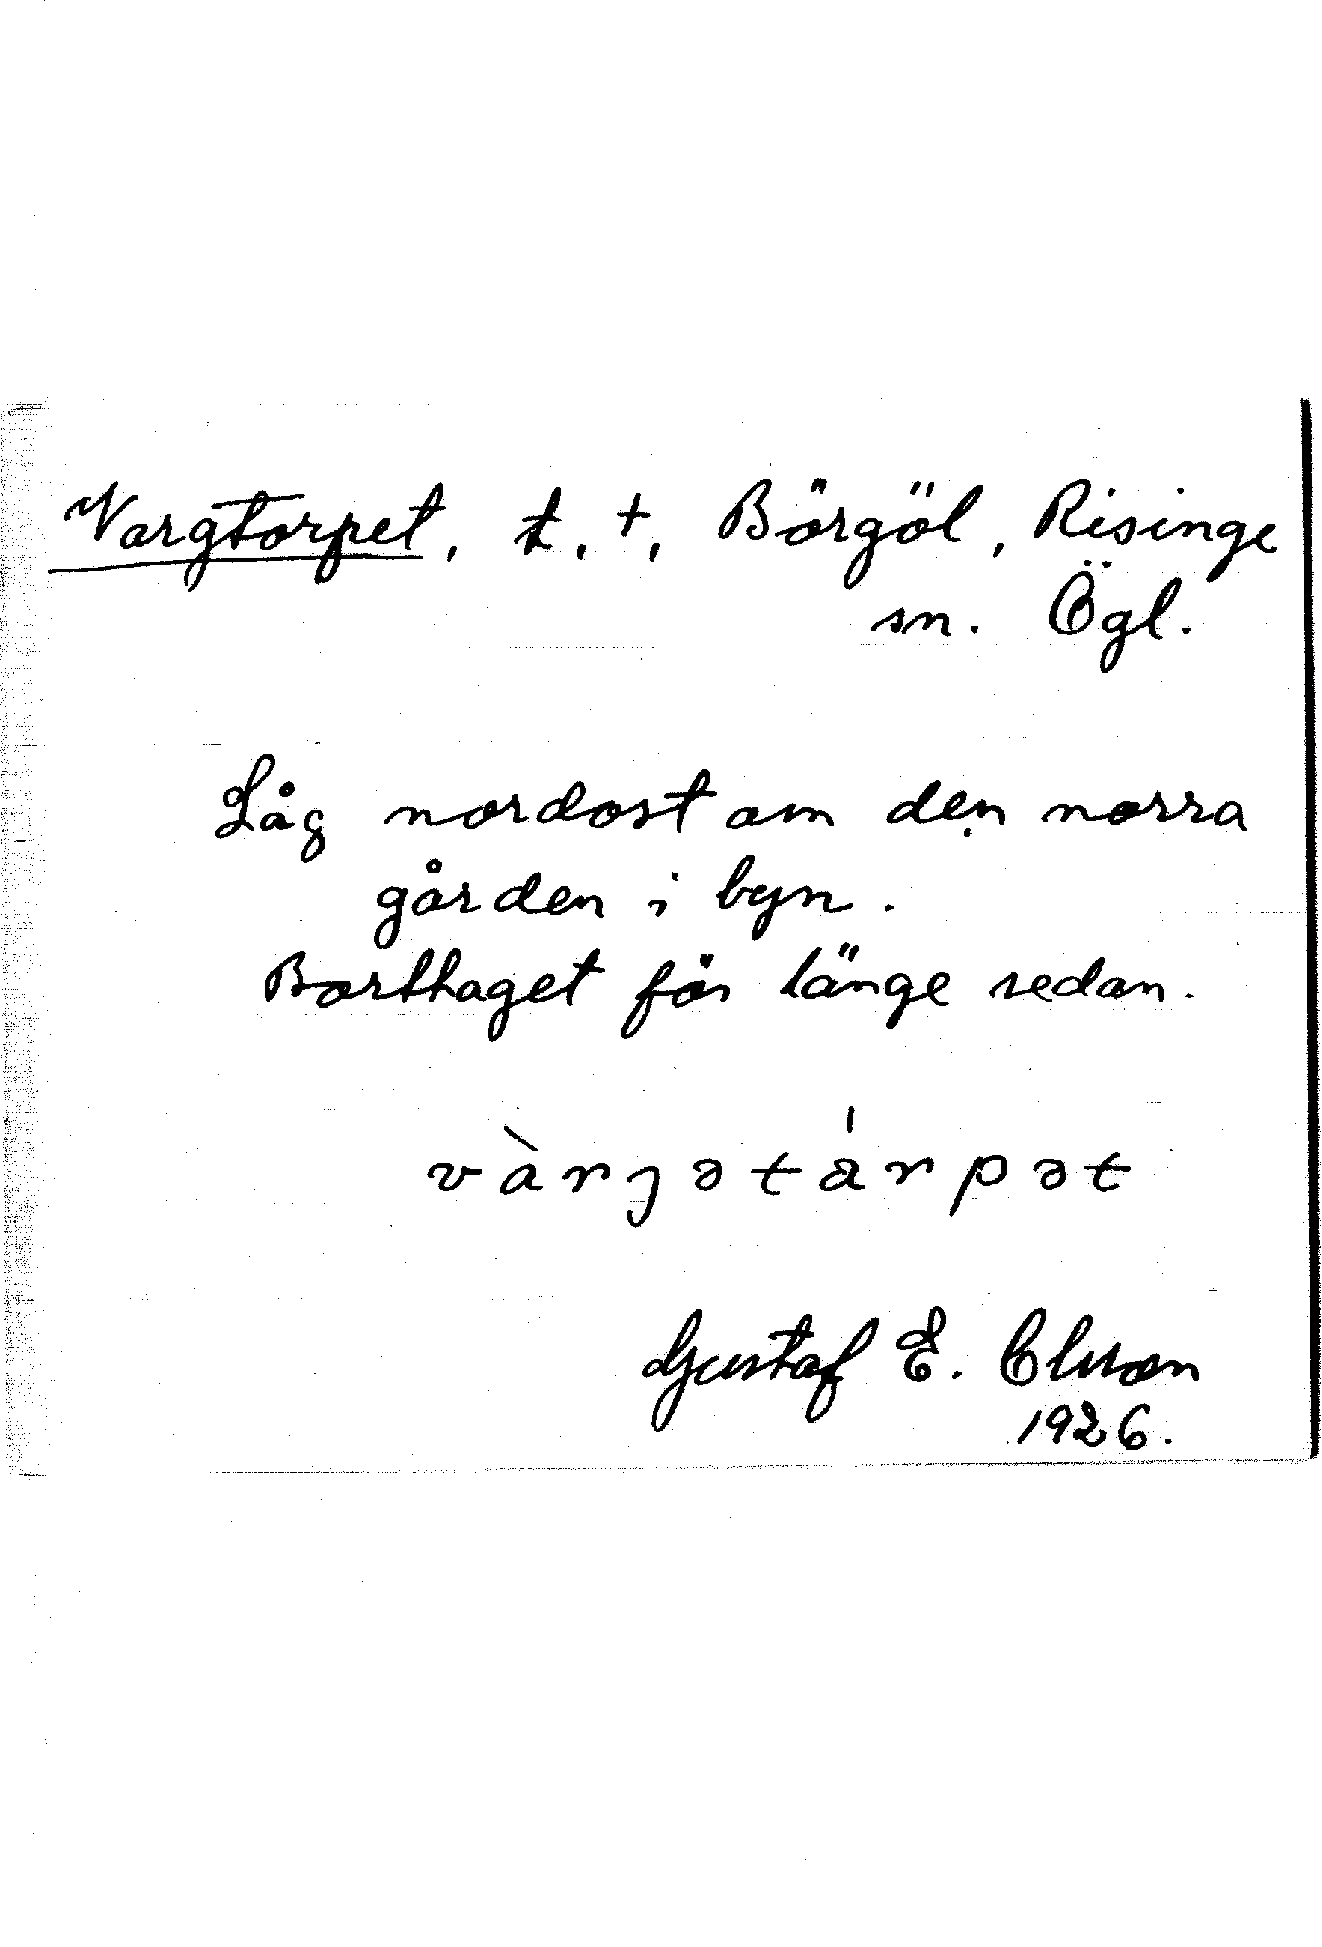 Vargtorpet, t. +, Börgöl, Risinge
sn. Ögl.
Låg nordost om den norra
gården i byn.
Borttaget för länge sedan.
vàrjətárpət
Gustaf E. Olsson
1926.